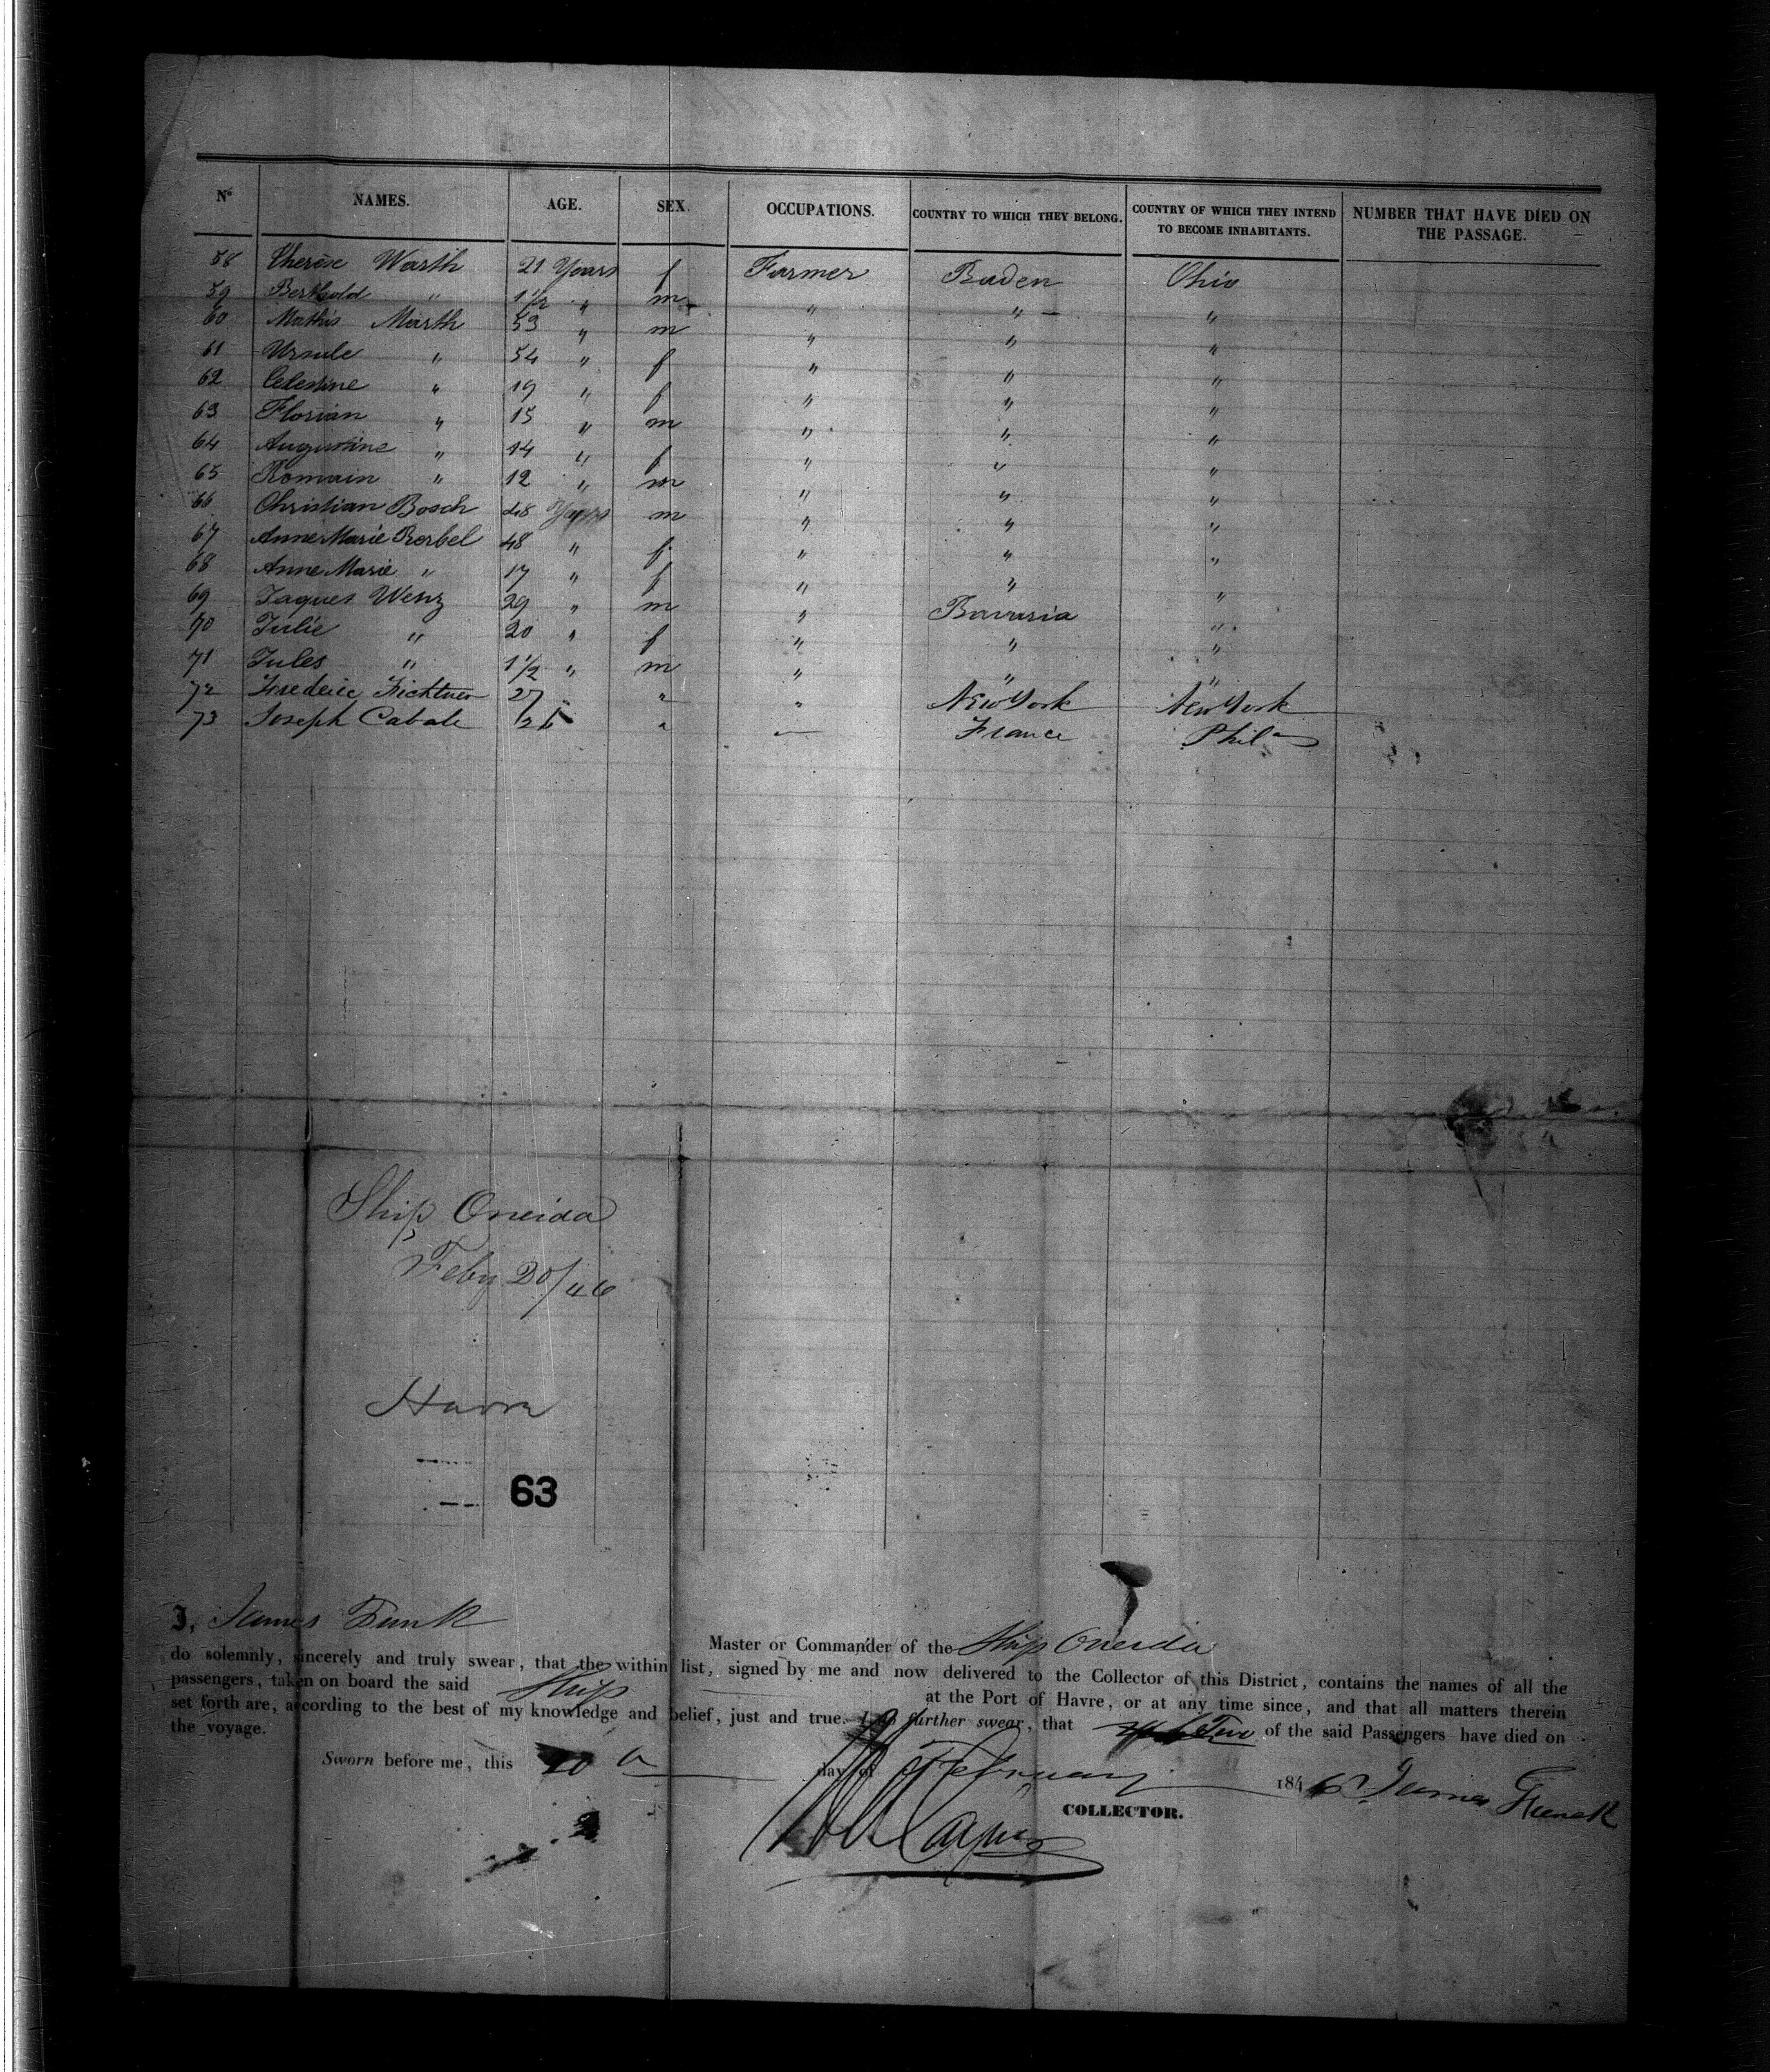 Nº NAMES. AGE. SEX. OCCUPATIONS. COUNTRY TO WHICH THEY BELONG. COUNTRY OF WHICH THEY INTEND TO BECOME INHABITANTS. NUMBER THAT HAVE DIED ON THE PASSAGE.
58 Therèse Warth 21 Years f Farmer Baden Ohio
59 Berthold " 1 1/2 " m " " "
60 Mathis Marth 53 " m " " "
61 Ursule " 54 " f " " "
62 Celestine " 19 " f " " "
63 Florian " 15 " m " " "
64 Augustine " 14 " f " " "
65 Romain " 12 " m " " "
66 Christian Bosch 48 Years m " " "
67 Anne Marie Berbel 48 " f " " "
68 Anne Marie " 17 " f " " "
69 Jaques Wenz 29 " m " Bavaria "
70 Julie " 20 " f " " "
71 Jules " 1 1/2 " m " " "
72 Frederic Fichtner 27 " " " New York New York
73 Joseph Cabale " France Phila
Ship Oneida
Feby 20/46
Havre
63
I, James Funk Master or Commander of the Ship Oneida
do solemnly, sincerely and truly swear, that the within list, signed by me and now delivered to the Collector of this District, contains the names of all the
passengers, taken on board the said Ship at the Port of Havre, or at any time since, and that all matters therein
set forth are, according to the best of my knowledge and belief, just and true. I do further swear, that Two of the said Passengers have died on
the voyage.
Sworn before me, this 20 day of February 1846 James Funck
COLLECTOR.